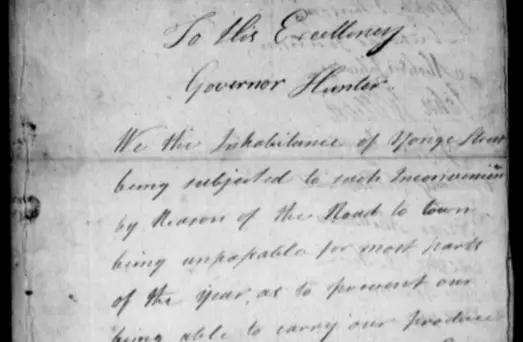 To His Excellency
Governor Hunter
We the Inhabitance of Yonge Street
being subjected to such Inconvenien
by Reason of the Road to town
being unpassable for most parts
of the year, as to prevent our
being able to carry our produce